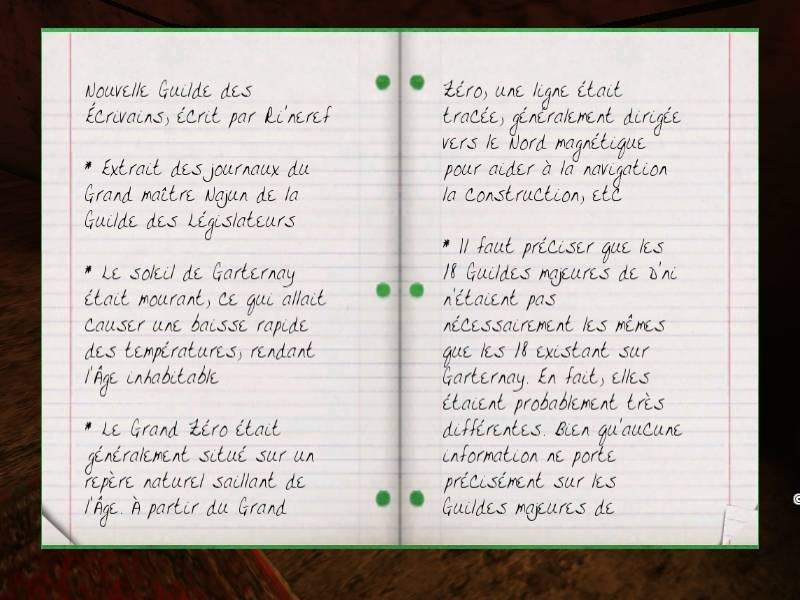 Nouvelle Guilde des
Écrivains, écrit par Ri'neref
* Extrait des journaux du
Grand maître Najun de la
Guilde des Législateurs
* Le soleil de Garternay
était mourant, ce qui allait
causer une baisse rapide
des températures, rendant
l'Âge inhabitable
* Le Grand Zéro était
généralement situé sur un
repère naturel saillant de
l'Âge. À partir du Grand
Zéro, une ligne était
tracée, généralement dirigée
vers le Nord magnétique
pour aider à la navigation
la construction, etc
* Il faut préciser que les
18 Guildes majeures de D'ni
n'étaient pas
nécessairement les mêmes
que les 18 existant sur
Garternay. En fait, elles
étaient probablement très
différentes. Bien qu'aucune
information ne porte
précisément sur les
Guildes majeures de